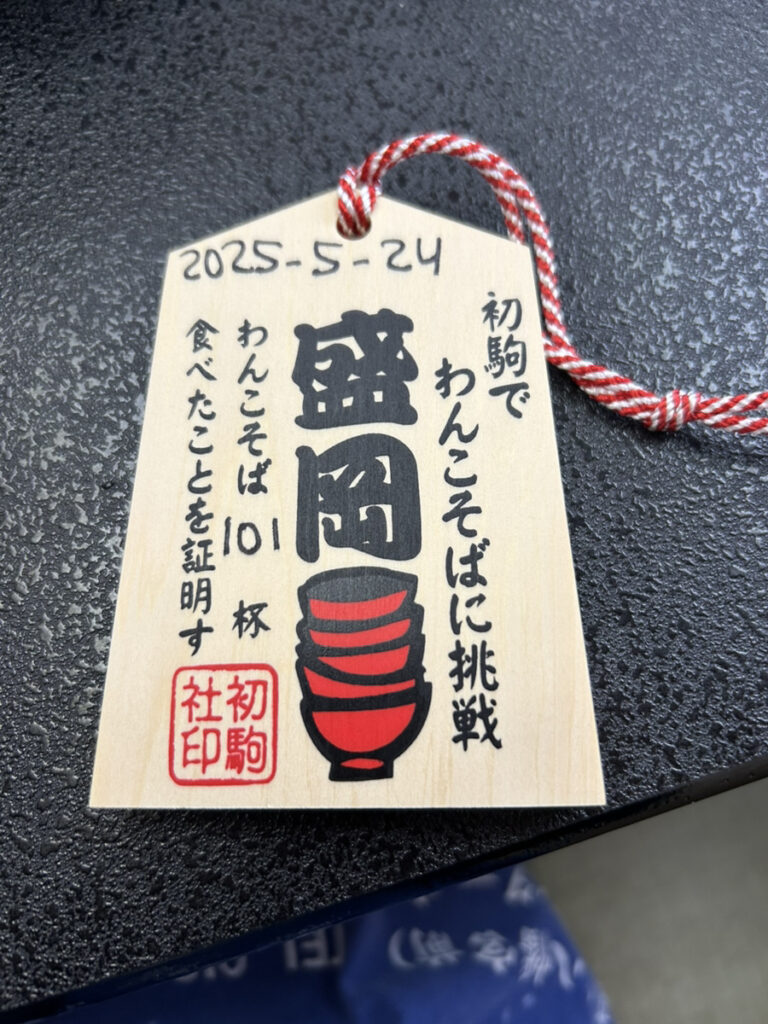 2025-5-24
初駒で
わんこそばに挑戦
盛岡
わんこそば 101 杯
食べたことを証明す
初駒
社印